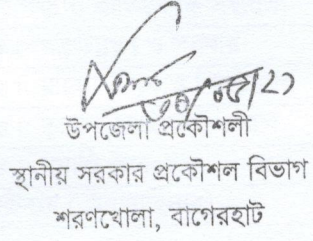 উপজেলা প্রকৌশলী
স্থানীয় সরকার প্রকৌশল বিভাগ
শরণখোলা, বাগেরহাট